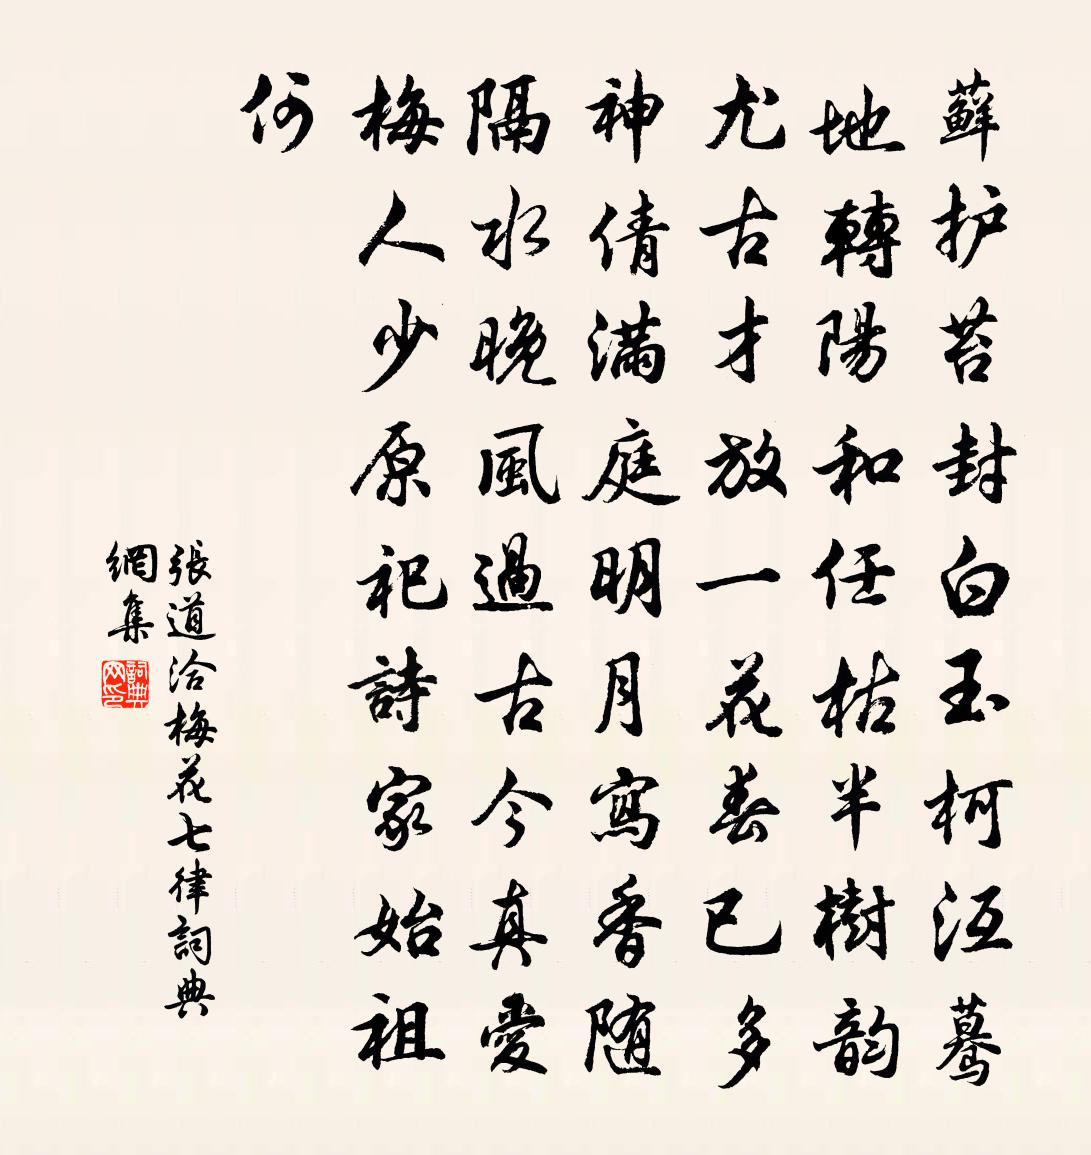 蘚护苔封白玉柯沍驀
地轉陽和任枯半樹韵
尤古才放一花春已多
神倩滿庭明月寫香随
隔水晚風過古今真愛
梅人少原祀詩家始祖
何
張道洽梅花七律詞典
網集
詞典网印